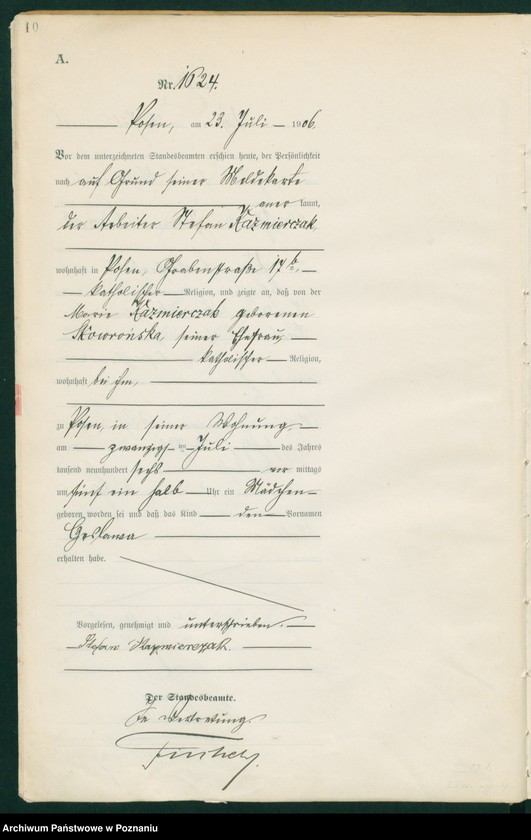 10
A.
Nr. 1624.
Posen, am 23. Juli 1906.
Vor dem unterzeichneten Standesbeamten erschien heute, der Persönlichkeit
nach auf Grund seiner Meldekarte
aner kannt,
der Arbeiter Stefan Kazmierczak
wohnhaft in Posen, Grabenstraße 17
katholischer Religion, und zeigte an, daß von der
Marie Kazmierczak geborenen
Skowrońska, seiner Ehefrau,
katholischer Religion,
wohnhaft bei ihm,
zu Posen in seiner Wohnung
am zwanzigs ten Juli des Jahres
tausend neunhundert sechs vor mittags
um fünf ein halb Uhr ein Mädchen
geboren worden sei und daß das Kind den Vornamen
erhalten habe.
Vorgelesen, genehmigt und unterschrieben.
Stefan Kazmierczak.
Der Standesbeamte.
In Vertretung.
Archiwum Państwowe w Poznaniu